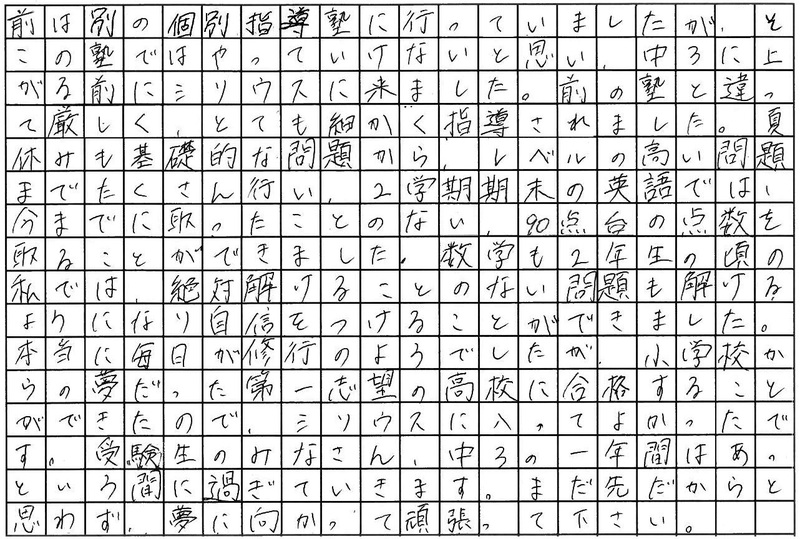 前は別の個別指導塾に行っていましたが、そ
この塾ではやっていけないと思い、中3に上
がる前にシリウスに来ました。前の塾と違っ
て厳しく、とても細かく指導されました。夏
休みも基礎的な問題から、レベルの高い問題
までたくさん行い、2学期期末の英語では、
今までに取ったことのない、90点台の点数を
取ることができました。数学も2年生の頃の
私では、絶対解けることのない問題も解ける
ようになり自信をつけることができました。
本当に毎日が修行のようでしたが、小学校か
らの夢だった第一志望の高校に合格すること
ができたので、シリウスに入ってよかったで
す。受験生のみなさん、中3の一年間はあっ
という間に過ぎていきます。まだ先だからと
思わず、夢に向かって頑張って下さい。